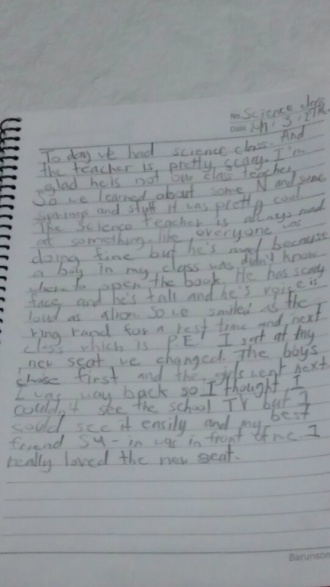 No. Science class
Date
Today we had science class. And
the teacher is pretty scary. I'm
glad he is not our class teacher
So we learned about some N and some
and stuff it was pretty cool
The science teacher is always mad
at something like everyone was
doing fine but he's mad because
a boy in my class was didn't know
to open the book. He has scary
face and he's tall and he's is
loud as a lion So we smiled as the
ring rang for a rest time and next
class which is P.E I seat at my
new seat we changed. The boys
chose first and the girls went next
I was way back so I thought I
couldn't see the school TV but I
could see it easily and my best
friend Su-in was in front of me. I
really loved the new seat.
Barunson